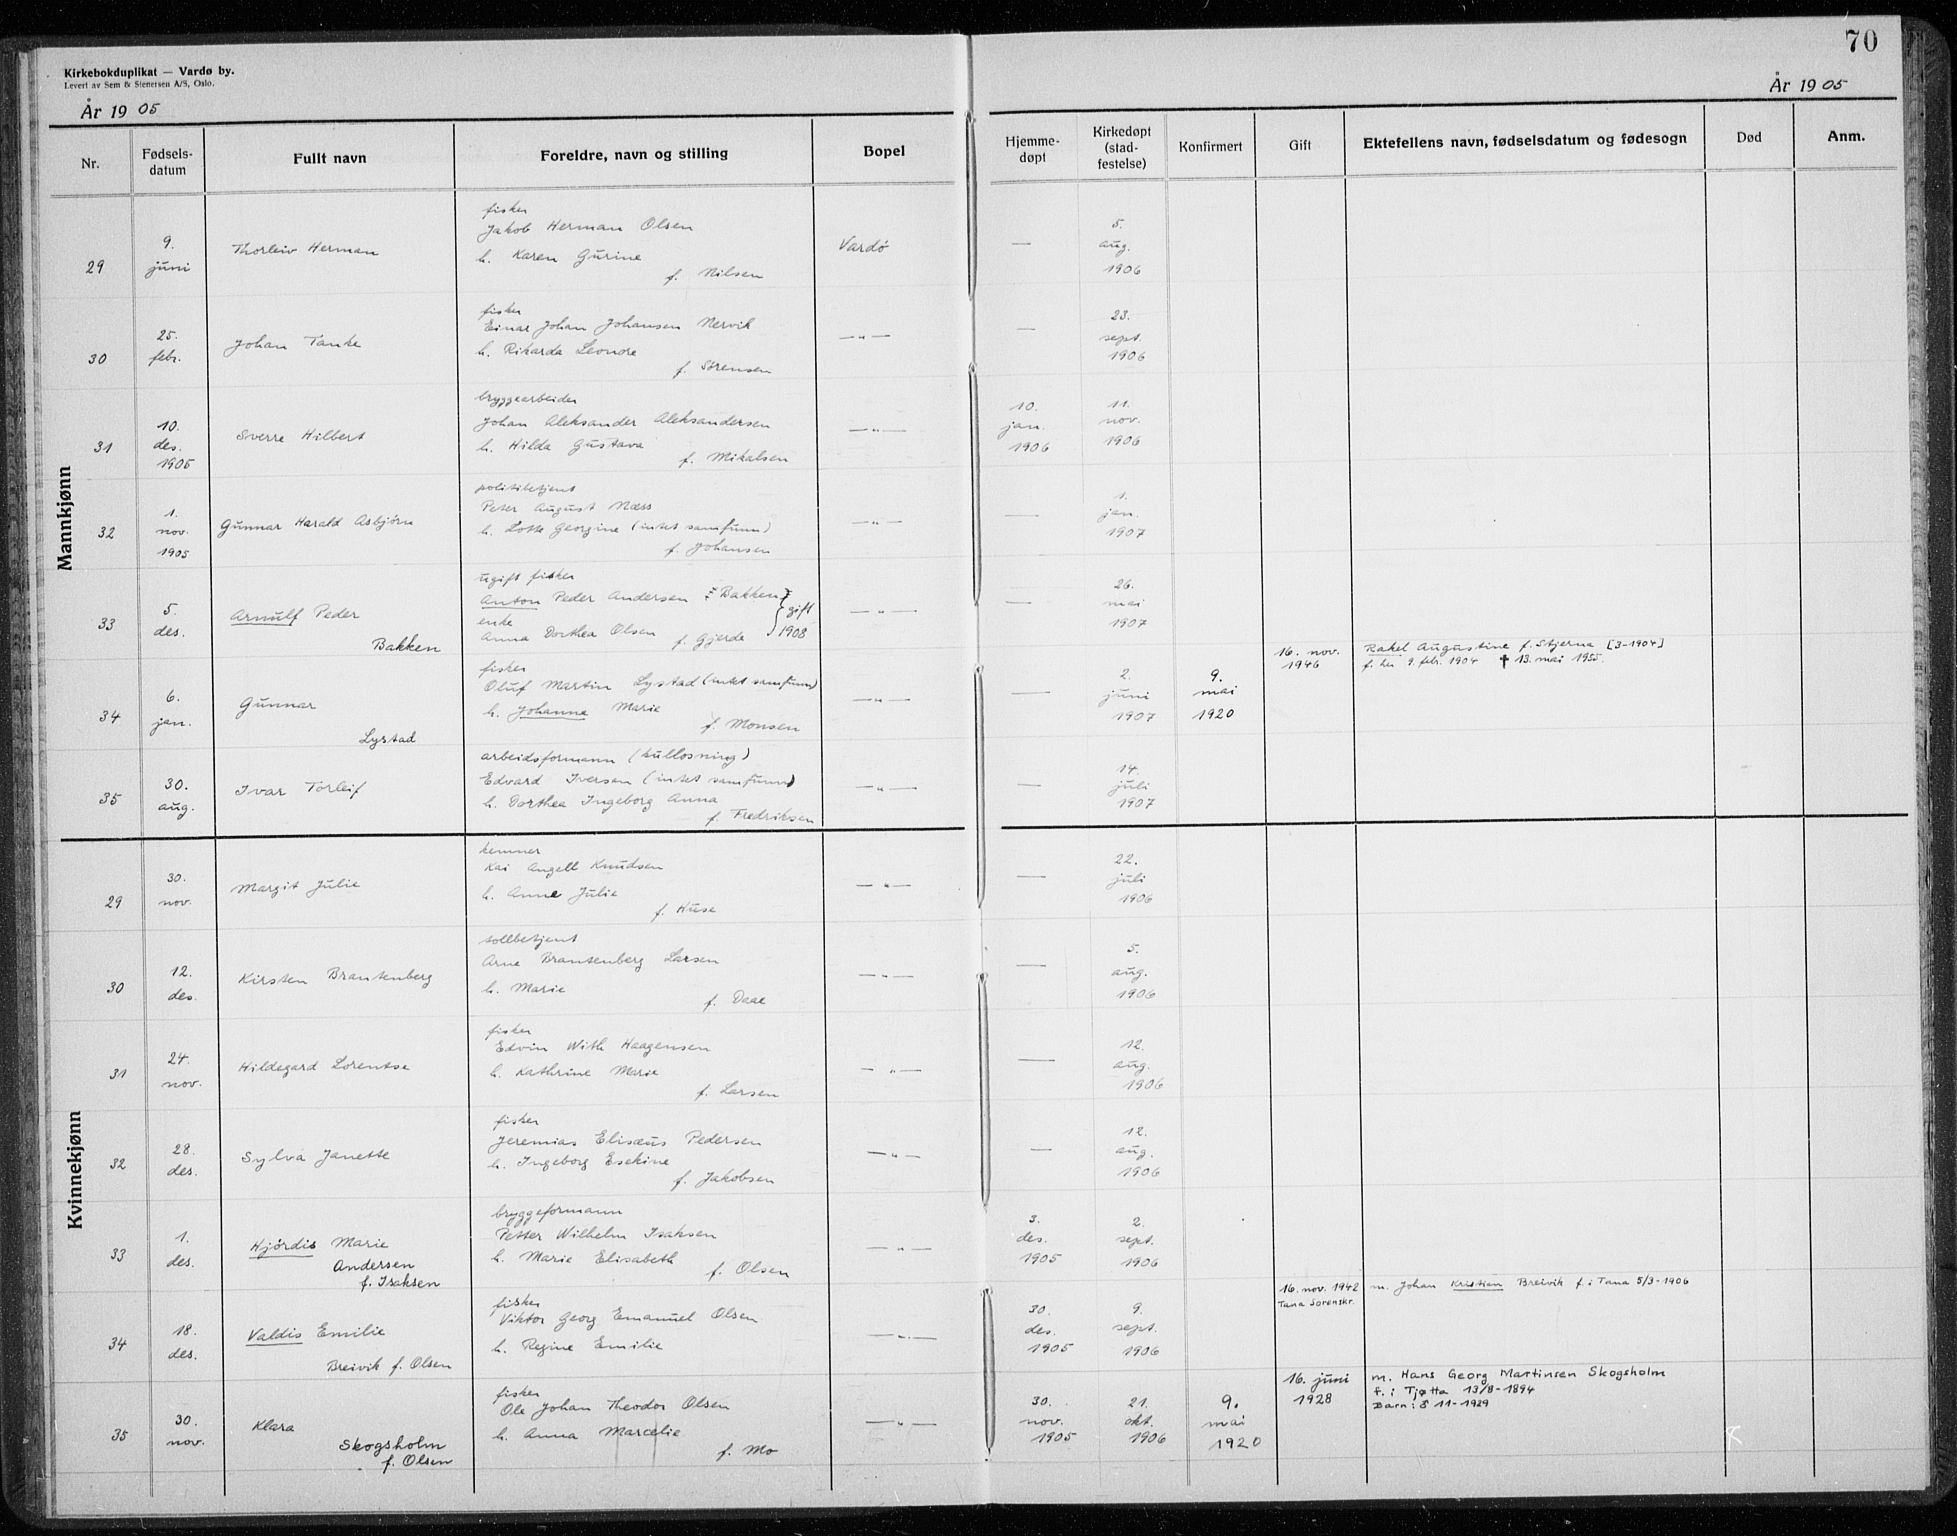 70
Kirkebokduplikat — Vardø by.
Levert av Sem & Stenersen A/S, Oslo.
År 1905
År 1905
Nr.
Fødsels-
datum
Fullt navn
Foreldre, navn og stilling
Bopel
Hjemme-
døpt
Kirkedøpt
(stad-
festelse)
Konfirmert
Gift
Ektefellens navn, fødselsdatum og fødesogn
Død
Anm.
Mannkjønn
29
9.
juni
Thorleiv Herman
fisker
Jakob Herman Olsen
h. Karen Gurine
f. Nilsen
Vardø
—
5.
aug.
1906
30
25.
febr.
Johan Tanke
fisker
Einar Johan Johansen Nervik
h. Rikarda Leonore
f. Sørensen
— " —
—
23.
sept.
1906
31
10.
des.
1905
Sverre Hilbert
bryggearbeider
Johan Aleksander Aleksandersen
h. Hilda Gustava
f. Mikalsen
— " —
10.
jan.
1906
11.
nov.
1906
32
1.
nov.
1905
Gunnar Harald Asbjørn
politibetjent
Peter August Næss
h. Lotte Georgine (intet samfunn)
f. Johansen
— " —
—
1.
jan.
1907
33
5.
des.
Arnulf Peder
Bakken
ugift fisker
Anton Peder Andersen Bakken
enke
Anna Dorthea Olsen f. Gjerde
} gift
1908
— " —
—
26.
mai
1907
16. nov.
1946
Rakel Augustine f. Stjerna [3-1904]
f. her 9. febr. 1904 ✝ 13. mai 1955.
34
6.
jan.
Gunnar
Lystad
fisker
Oluf Martin Lystad (intet samfunn)
h. Johanne Marie
f. Monsen
— " —
—
2.
juni
1907
9.
mai
1920
35
30.
aug.
Ivar Torleif
arbeidsformann (kullosning)
Edvard Iversen (intet samfunn)
h. Dorthea Ingeborg Anna
f. Fredriksen
— " —
—
14.
juli
1907
Kvinnekjønn
29
30.
nov.
Margit Julie
kemner
Kai Angell Knudsen
h. Anne Julie
f. Huse
— " —
—
22.
juli
1906
30
12.
des.
Kirsten Brantenberg
tollbetjent
Arne Brantenberg Larsen
h. Marie
f. Daae
— " —
—
5.
aug.
1906
31
24.
nov.
Hildegard Lorentse
fisker
Edvin With Haagensen
h. Kathrine Marie
f. Larsen
— " —
—
12.
aug.
1906
32
28.
des.
Sylva Janette
fisker
Jeremias Elisæus Pedersen
h. Ingeborg Esekine
f. Jakobsen
— " —
—
12.
aug.
1906
33
1.
des.
Hjördis Marie
Andersen
f. Isaksen
bryggeformann
Petter Wilhelm Isaksen
h. Marie Elisabeth
f. Olsen
— " —
3.
des.
1905
2.
sept.
1906
34
18.
des.
Valdis Emilie
Breivik f. Olsen
fisker
Viktor Georg Emanuel Olsen
h. Regine Emilie
— " —
30.
des.
1905
9.
sept.
1906
16. nov. 1942
Tana Sorenskr.
m. Johan Kristian Breivik f. i Tana 5/3-1906
35
30.
nov.
Klara
Skogsholm
f. Olsen
fisker
Ole Johan Theodor Olsen
h. Anna Marcelie
f. Mo
— " —
30.
nov.
1905
21.
okt.
1906
9.
mai
1920
16. juni
1928
m. Hans Georg Martinsen Skogsholm
f. i Tjøtta 13/8-1894
Barn: 8 11-1929